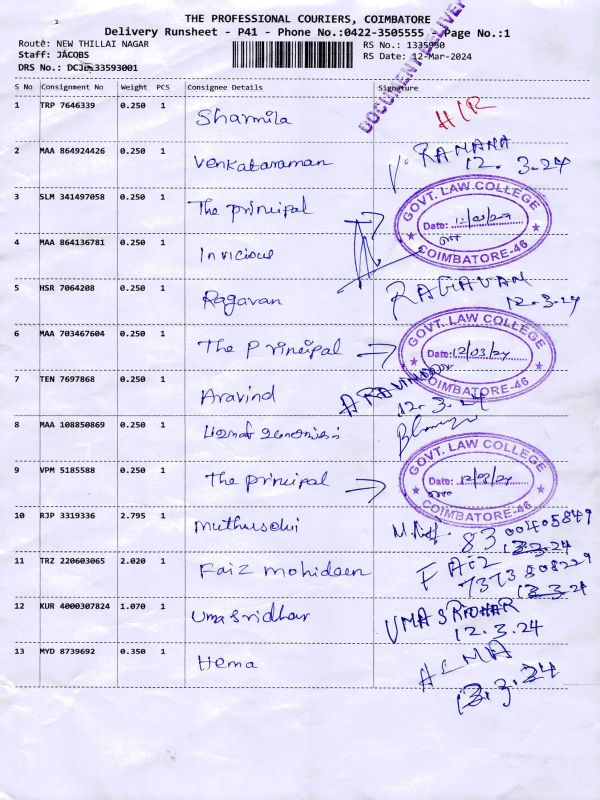 THE PROFESSIONAL COURIERS, COIMBATORE
Delivery Runsheet - P41 - Phone No.:0422-3505555 Page No.:1
Route: NEW THILLAI NAGAR
RS No.: 1335930
Staff: JACOBS
RS Date: 12-Mar-2024
DRS No.: 33593001
DOCUMENT DELIVERY
S No Consignment No Weight PCS Consignee Details Signature
1 TRP 7646339 0.250 1 Sharmila
2 MAA 864924426 0.250 1 Venkataraman V. RAMANA
12. 3.24
3 SLM 341497058 0.250 1 The principal
GOVT. LAW COLLEGE
Date: 12/03/24
COIMBATORE-46
4 MAA 864136781 0.250 1 Invicious
5 HSR 7064208 0.250 1 Ragavan RAGAVAN
12.3.24
6 MAA 703467604 0.250 1 The principal
GOVT. LAW COLLEGE
Date: 12/03/24
COIMBATORE-46
7 TEN 7697868 0.250 1 Aravind ARAVINDAN
12.3.24
8 MAA 108850869 0.250 1
9 VPM 5185588 0.250 1 The principal
GOVT. LAW COLLEGE
Date: 12/03/24
COIMBATORE-46
10 RJP 3319336 2.795 1 Muthuselvi
11 TRZ 220603065 2.020 1 Faiz mohideen FAIZ
12 KUR 4000307824 1.070 1 Umasridhar UMA SRIDHAR
12.3.24
13 MYD 8739692 0.350 1 Hema HEMA
12.3.24